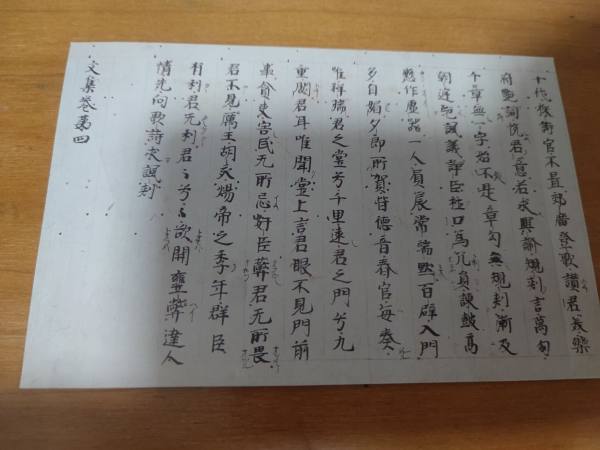 十代採詩官不置郊廟登歌讃君美樂
府艶詞悦君意若求興諭規刺言萬句
千章無一字始不是章句無規刺漸及
朝廷絶諷議諍臣杜口為冗員諫鼓高
懸作虚器一人負扆常端默百辟入門
多自媚夕郎所賀皆德音春官毎奏
唯祥瑞君之堂兮千里遠君之門兮九
重閟君耳唯聞堂上言君眼不見門前
事貪吏害民无所忌奸臣蔽君无所畏
君不見厲王胡亥煬帝之季年群臣
有利君无利君々兮々欲開壅蔽達人
情先向歌詩求諷刺
文集巻第四